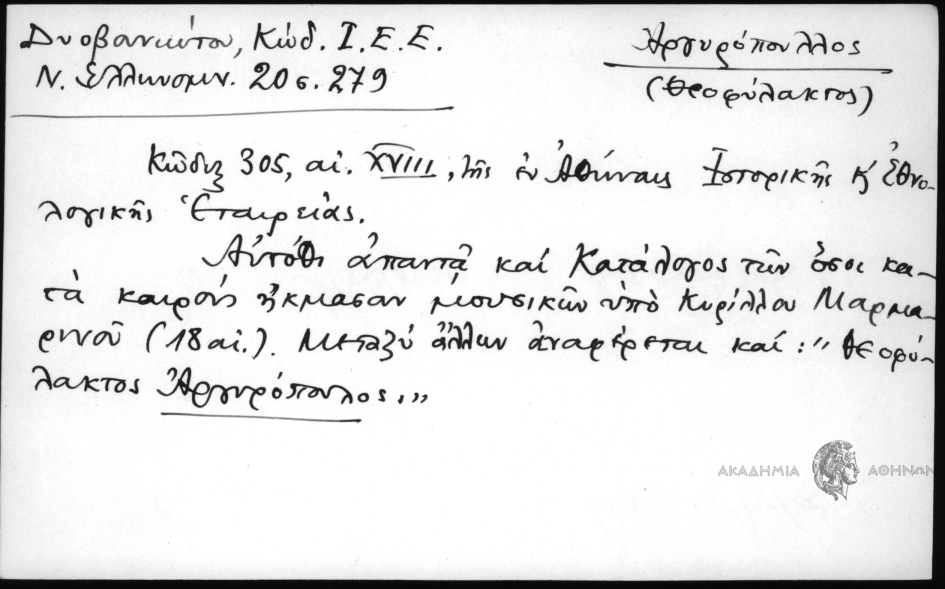 Δυοβουνιώτου, Κώδ. Ι.Ε.Ε.
Ν. Ἑλληνομν. 20 σ. 279
Ἀργυρόπουλλος
(Θεοφύλακτος)
Κῶδιξ 305, αἰ. XVIII, τῆς ἐν Ἀθήναις Ἱστορικῆς κ' Ἐθνο-
λογικῆς Ἑταιρείας.
Αὐτόθι ἀπαντᾷ καί Κατάλογος τῶν ὅσοι κα-
τὰ καιρούς ἤκμασαν μουσικῶν ὑπὸ Κυρίλλου Μαρμα-
ρινοῦ (18 αἰ.). Μεταξύ ἄλλων ἀναφέρεται καί: "Θεοφύ-
λακτος Ἀργυρόπουλος."
ΑΚΑΔΗΜΙΑ ΑΘΗΝΩΝ